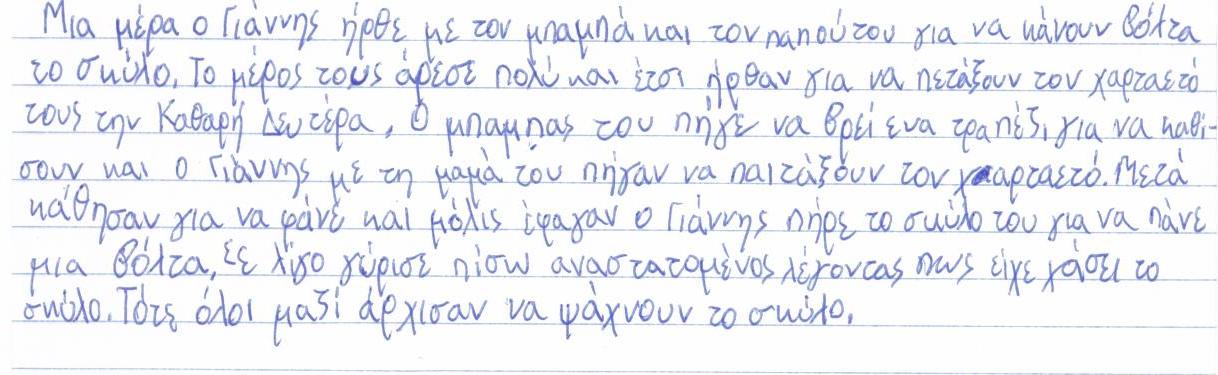 Μια μέρα ο Γιάννης ήρθε με τον μπαμπά και τον παπού του για να κάνουν βόλτα
το σκύλο. Το μέρος τους άρεσε πολύ και έτσι ήρθαν για να πετάξουν τον χαρταετό
τους την Καθαρή Δευτέρα, Ο μπαμπας του πήγε να βρεί ενα τραπέζι για να καθί-
σουν και ο Γιάννης με τη μαμά του πήγαν να παιτάξουν τον χααρταετό. Μετά
κάθησαν για να φάνε και μόλις έφαγαν ο Γιάννης πήρε το σκύλο του για να πάνε
μια βόλτα, Σε λίγο γύρισε πίσω αναστατομένος λέγοντας πως είχε χάσει το
σκύλο. Τότε όλοι μαζί άρχισαν να ψάχνουν το σκύλο.